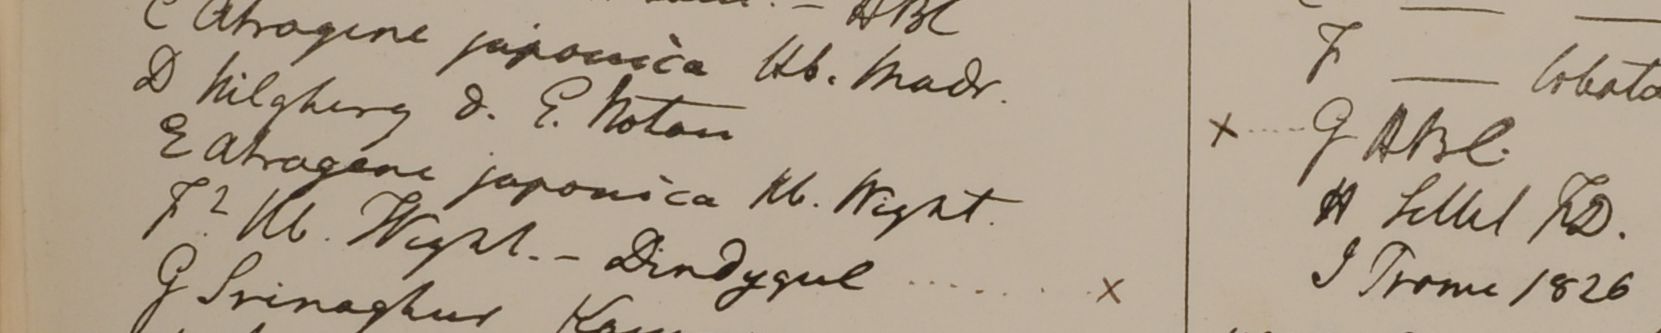 – HBC
C Atragene japonica Hb. Madr.
D Nilghery d. E. Noton
E Atragene japonica Hb. Wight.
F? Hb. Wight. – Dindygul ........ x
G Srinaghur
F — lobata
x .... G HBC.
H F.D.
I Prome 1826